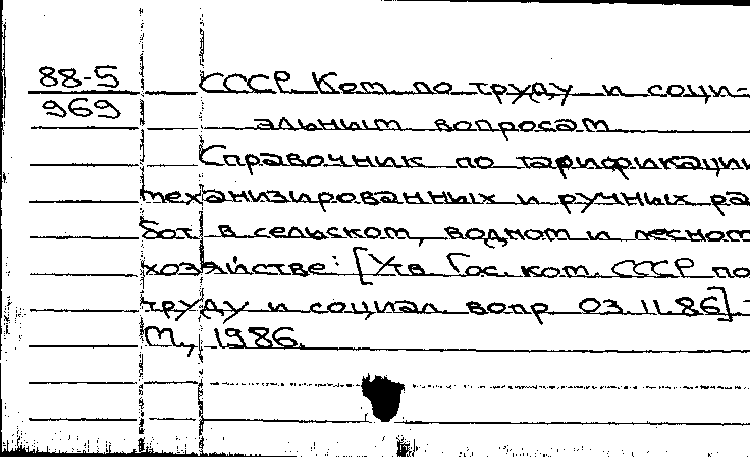 88-5 СССР. Ком. по труду и соци-
969 альным вопросам.
Справочник по тарификации
механизированных и ручных ра
бот в сельском, водном и лесном
хозяйстве: [Утв. Гос. ком. СССР по
труду и социал. вопр. 03.11.86].-
М., 1986.